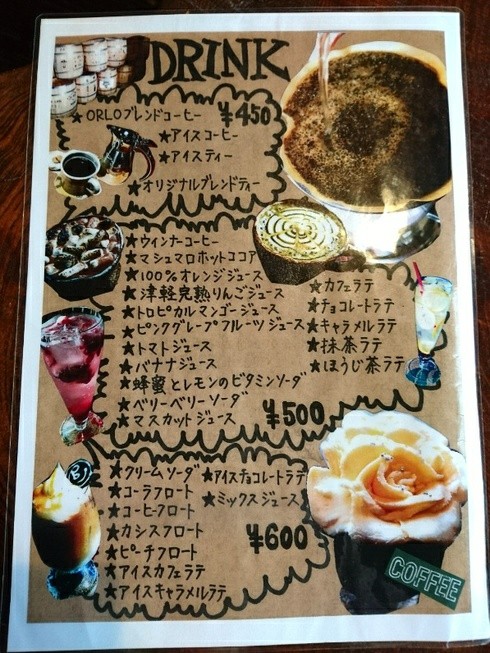 DRINK
★ORLOブレンドコーヒー ¥450
★アイスコーヒー
★アイスティー
★オリジナルブレンドティー
★ウィンナーコーヒー
★マシュマロホットココア
★100%オレンジジュース
★津軽完熟りんごジュース
★トロピカルマンゴージュース
★ピンクグレープフルーツジュース
★トマトジュース
★バナナジュース
★蜂蜜とレモンのビタミンソーダ
★ベリーベリーソーダ
★マスカットジュース
★カフェラテ
★チョコレートラテ
★キャラメルラテ
★抹茶ラテ
★ほうじ茶ラテ
¥500
★クリームソーダ
★コーラフロート
★コーヒーフロート
★カシスフロート
★ピーチフロート
★アイスカフェラテ
★アイスキャラメルラテ
★アイスチョコレートラテ
★ミックスジュース
¥600
COFFEE